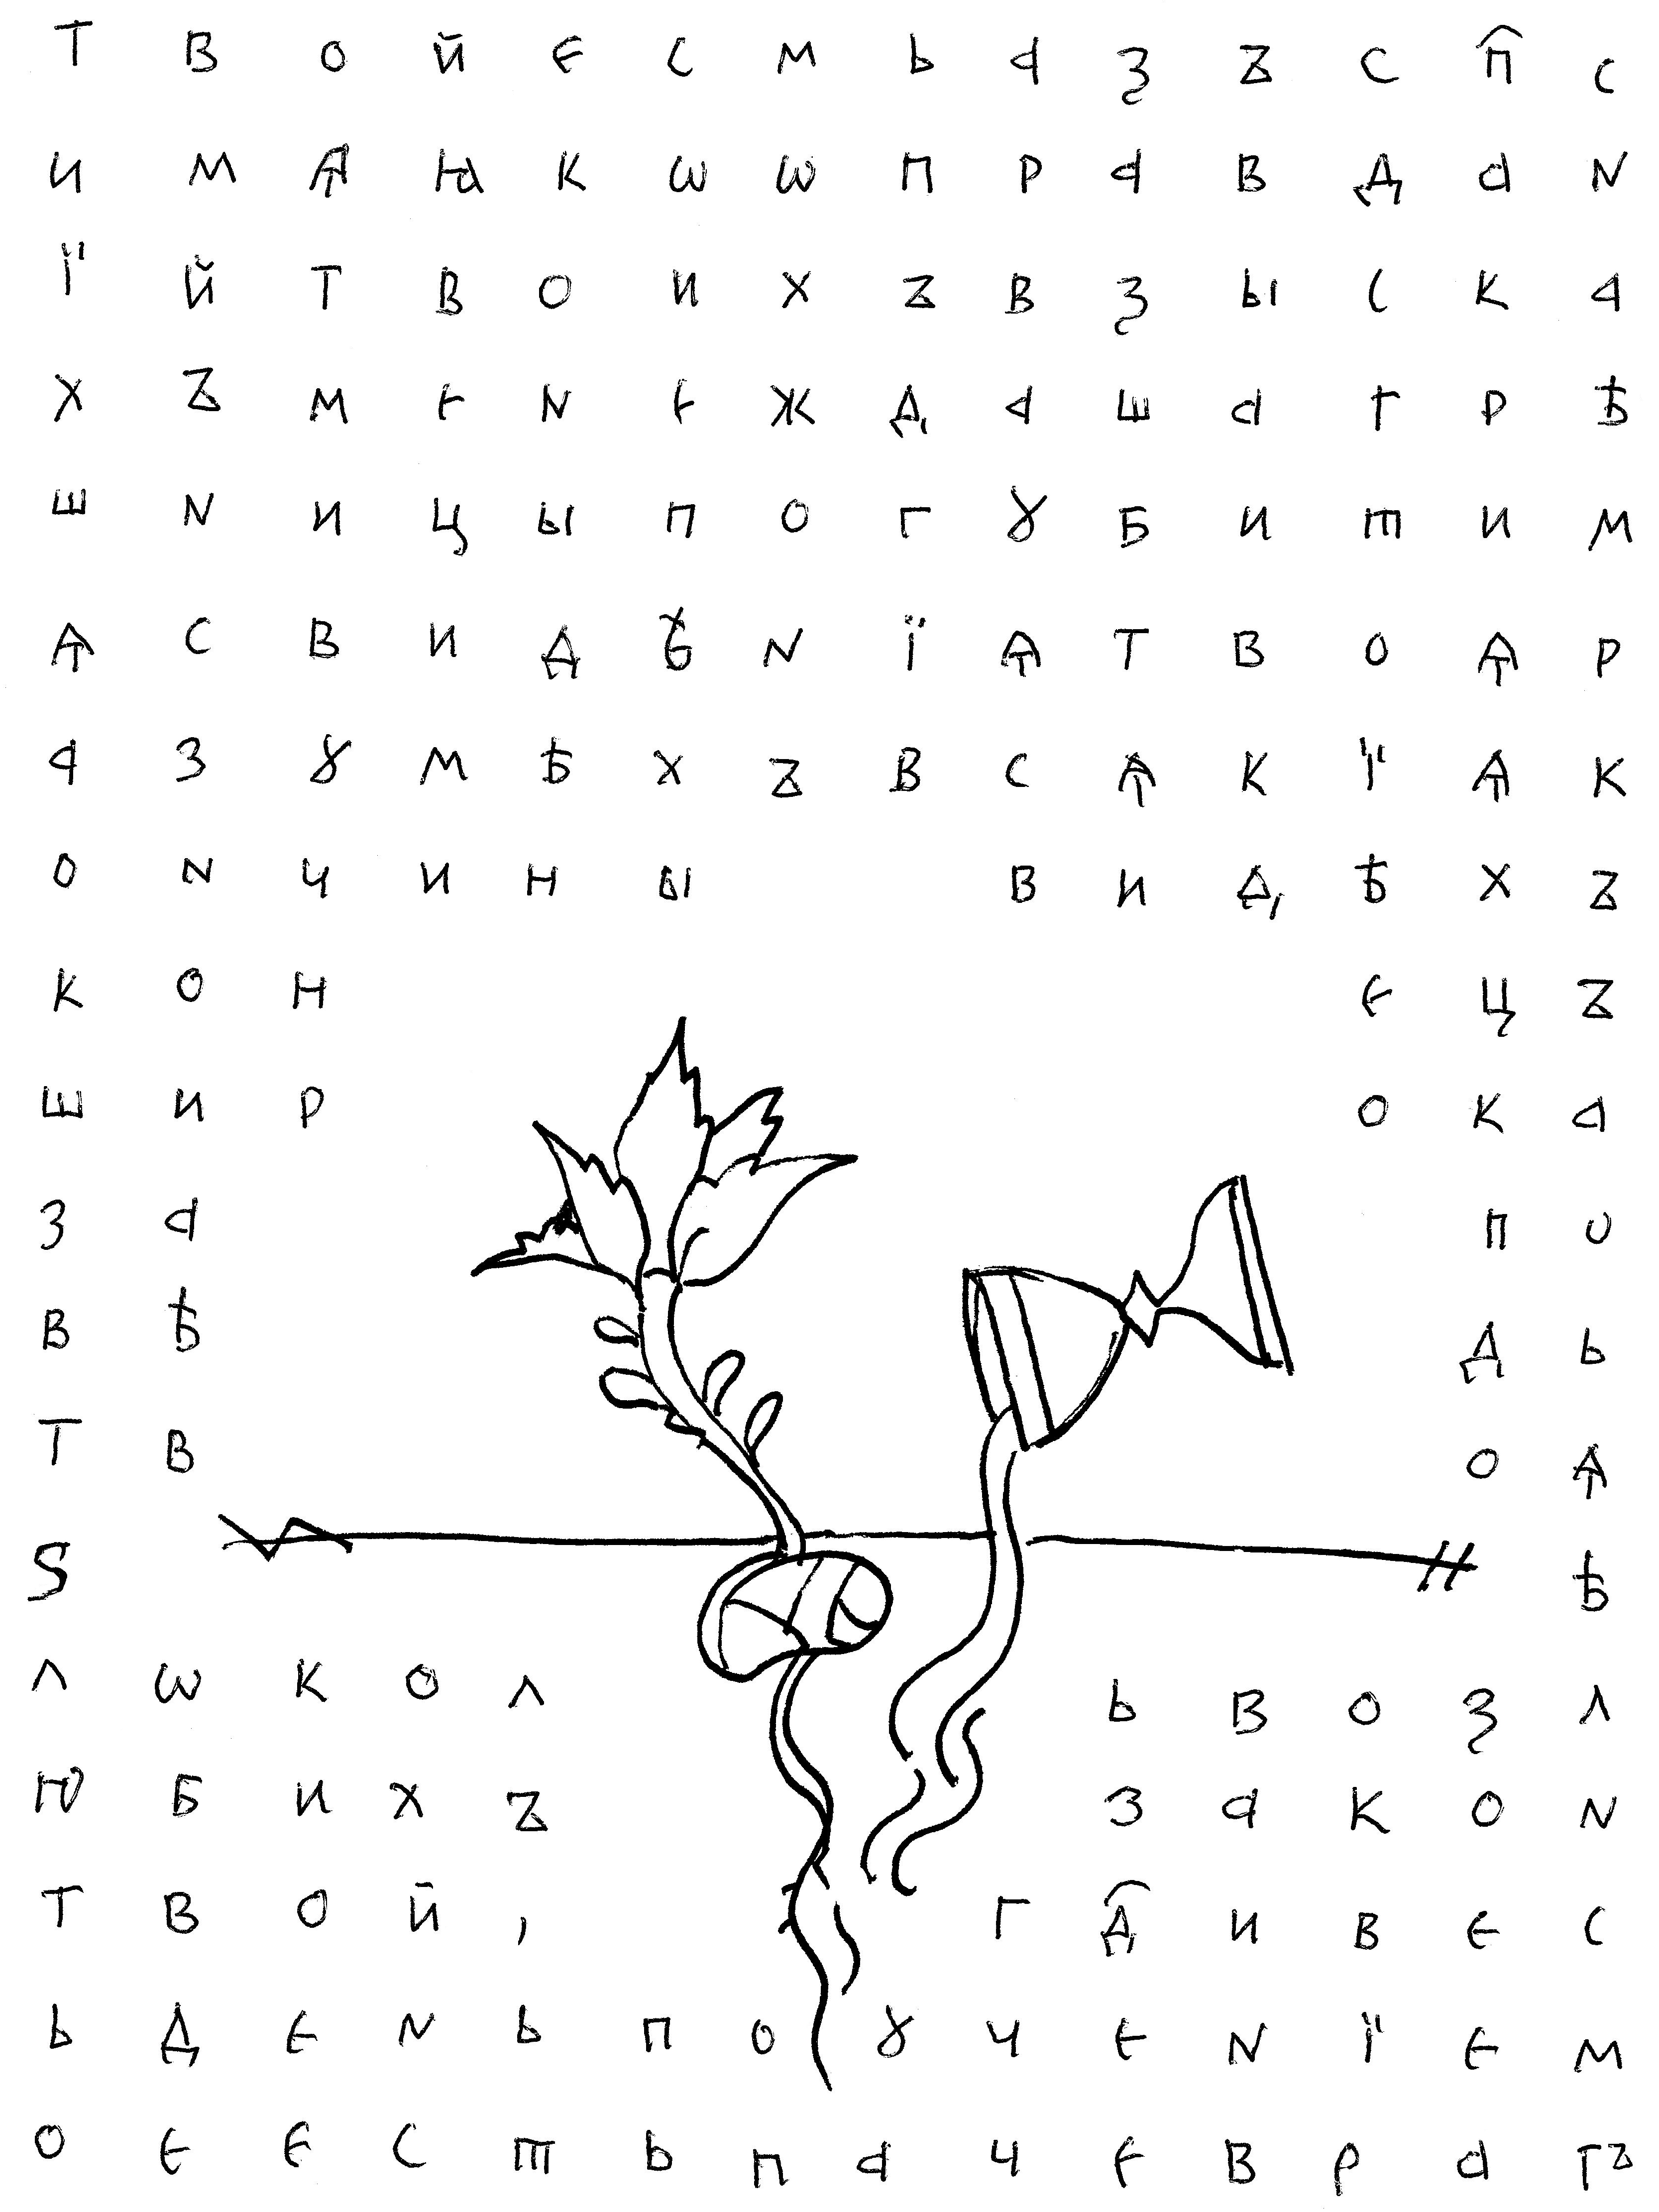 Т В О Й Є С М Ь А З Ъ С П҃ С
И М Ѧ Ꙗ К Ѡ Ѡ П Р А В Д А Н
Ї Й Т В О И Х Ъ В З Ы С К А
Х Ъ М Є Н Є Ж Д А Ш А Г Р Ѣ
Ш Н И Ц Ы П О Г Ꙋ Б И Т И М
Ѧ С В И Д Ѣ Н Ї Ѧ Т В О Ѧ Р
А З Ꙋ М Ѣ Х Ъ В С Ѧ К Ї Ѧ К
О Н Ч И Н Ы В И Д Ѣ Х Ъ
К О Н Є Ц Ъ
Ш И Р О К А
З А П О
В Ѣ Д Ь
Т В О Ѧ
Ѕ Ѣ
Л Ѡ К О Л Ь В О З Л
Ю Б И Х Ъ З А К О Н
Т В О Й , Г Д҃ И В Є С
Ь Д Є Н Ь П О Ꙋ Ч Є Н Ї Є М
О Є Є С Т Ь П А Ч Є В Р А ГЪ